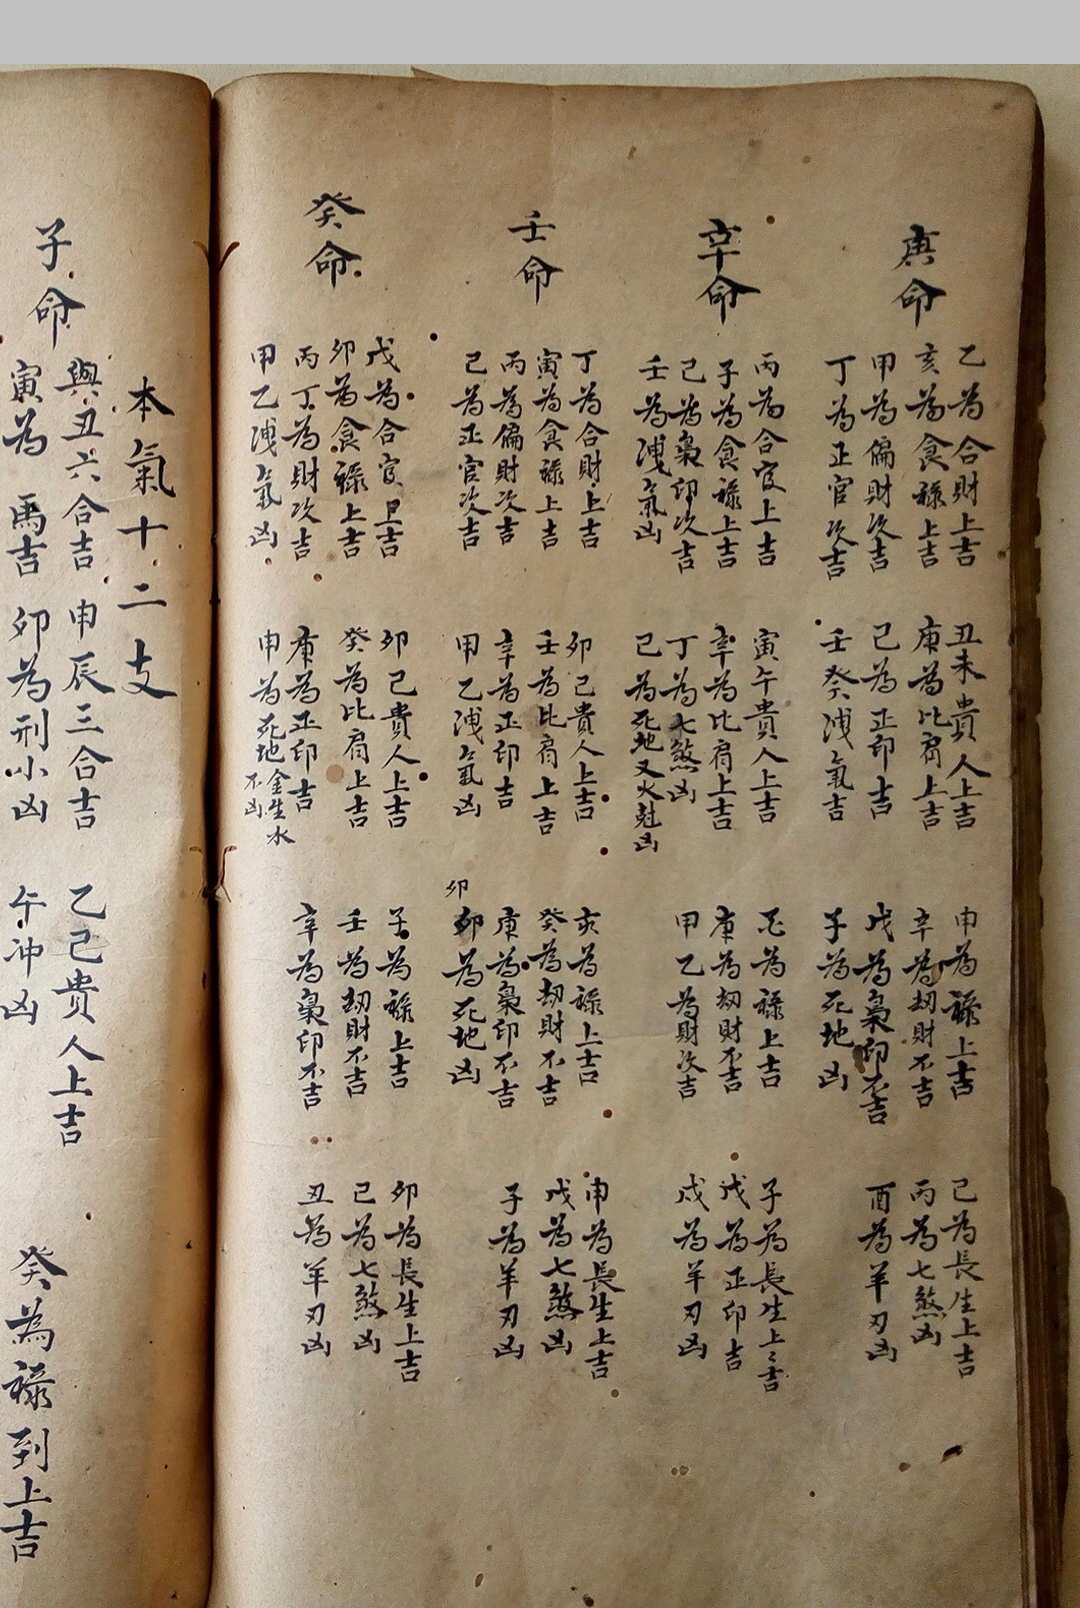 庚命
乙為合財上吉 丑未貴人上吉 申為祿上吉 己為長生上吉
亥為食祿上吉 庚為比肩上吉 辛為劫財不吉 丙為七煞凶
甲為偏財次吉 己為正印吉 戊為梟印不吉 酉為羊刃凶
丁為正官次吉 壬癸洩氣吉 子為死地凶
辛命
丙為合官上吉 寅午貴人上吉 為祿上吉 子為長生上吉
子為食祿上吉 辛為比肩上吉 庚為劫財不吉 戊為正印吉
己為梟印次吉 丁為七煞凶 甲乙為財次吉 戌為羊刃凶
壬為洩氣凶 己為死地又火尅凶
壬命
丁為合財上吉 卯己貴人上吉 亥為祿上吉 申為長生上吉
寅為食祿上吉 壬為比肩上吉 癸為劫財不吉 戊為七煞凶
丙為偏財次吉 辛為正印吉 庚為梟印不吉 子為羊刃凶
己為正官次吉 甲乙洩氣凶 卯 卯為死地凶
癸命
戊為合官上吉 卯己貴人上吉 子為祿上吉 卯為長生上吉
卯為食祿上吉 癸為比肩上吉 壬為劫財不吉 己為七煞凶
丙丁為財次吉 庚為正印吉 辛為梟印不吉 丑為羊刃凶
甲乙洩氣凶 申為死地 金生水不凶
本氣十二支
子命
與丑六合吉 申辰三合吉 乙己貴人上吉 癸為祿到上吉
寅為馬吉 卯為刑小凶 午冲凶